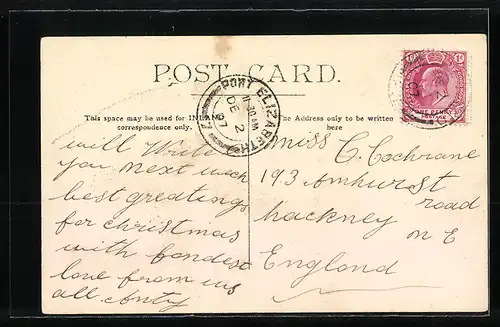 POST CARD.
This space may be used for INLAND
correspondence only.
The Address only to be written
here
PORT ELIZABETH
11.30 AM
DE 2
07
ONE PENNY
POSTAGE
will write
you next week
best greetings
for christmas
with fondest
love from us
all Aunty
miss C. Cochrane
193 Amhurst
road
Hackney
N E
England